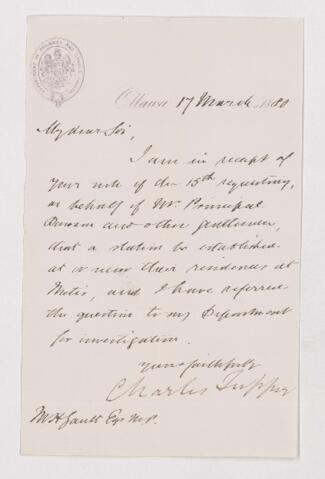 Ottawa 17 March 1880
My dear Sir,
I am in receipt of
your note of the 15th requesting,
on behalf of Mr. Principal
Dawson and other gentlemen,
that a station be established
at or near their residences at
Metis, and I have referred
the question to my Department
for investigation.
Yours faithfully
Charles Tupper
M H Gault Esq M.P.